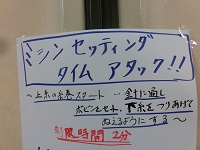 ミシン セッティング
タイム アタック!!
～上糸の糸巻スタート → 針に通し
ボビンセット、下糸をつりあげて
ぬえるようにする～
制限時間 2分